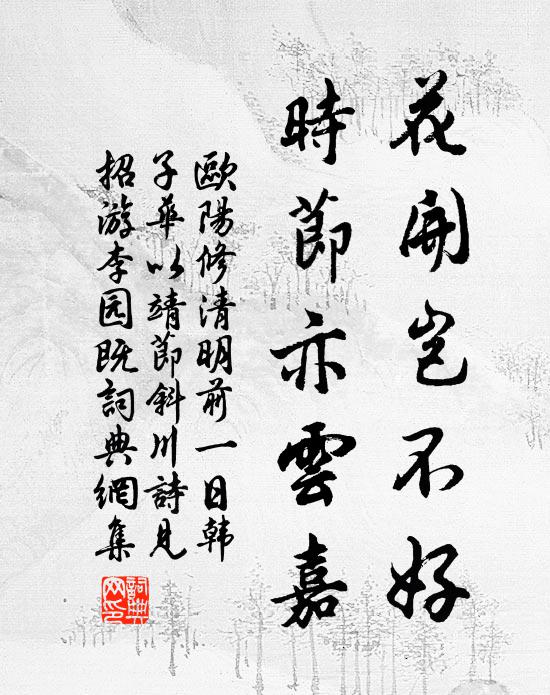 花開豈不好
時節亦雲嘉
歐陽修清明前一日韩
子華以靖節斜川詩見
招游李园既詞典網集